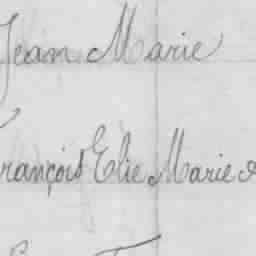 Jean Marie
François Elie Marie